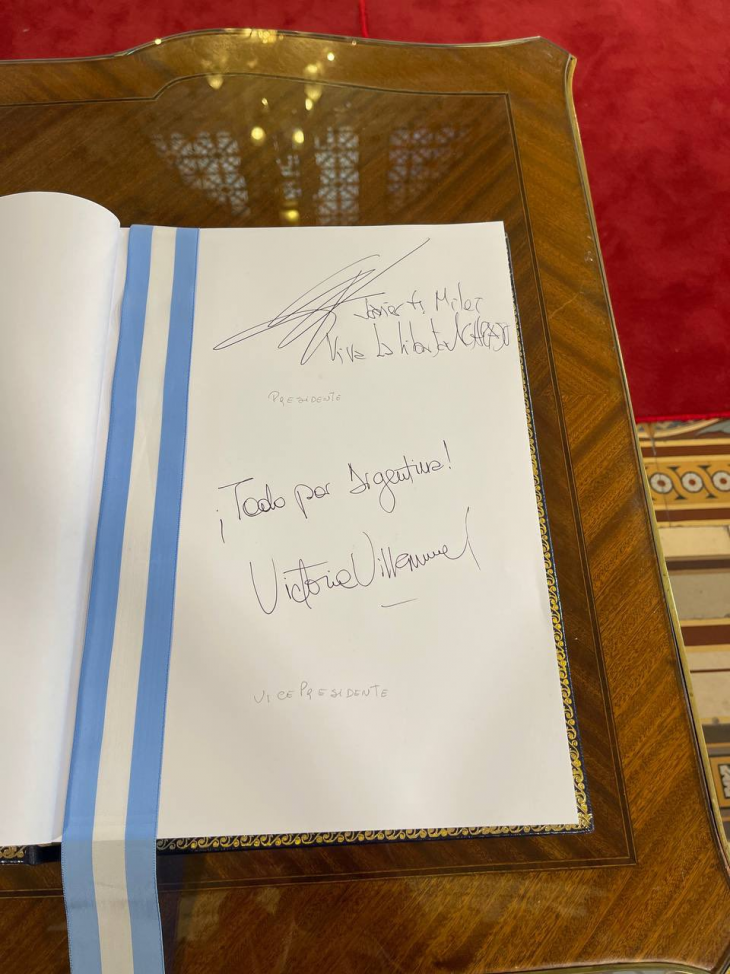 Javier G. Milei
Viva La Libertad CARAJO
PRESIDENTE
¡Todo por Argentina!
Victoria Villarruel
VICEPRESIDENTE